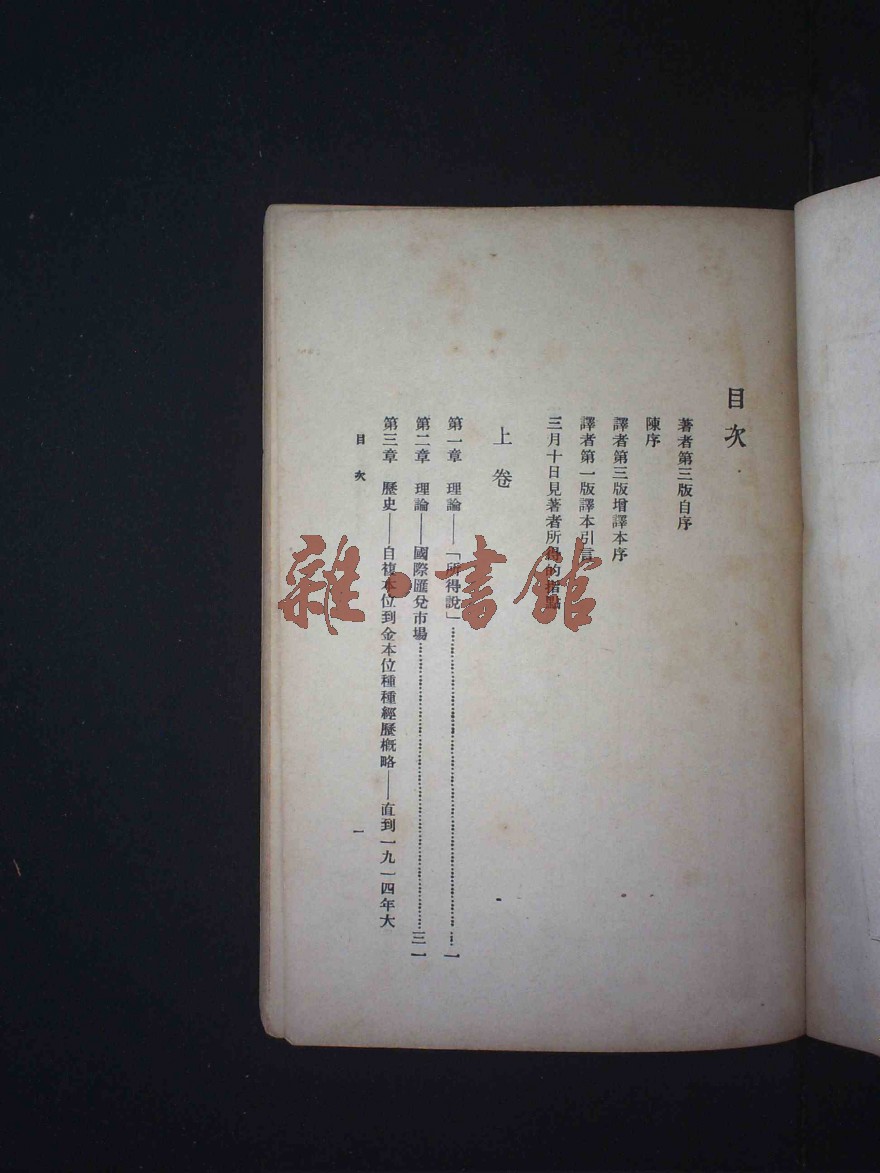 目次
著者第三版自序
陳序
譯者第三版增譯本序
譯者第一版譯本引言
三月十日見著者所得的指點
上卷
第一章 理論——「所得說」……一
第二章 理論——國際匯兌市場……三一
第三章 歷史——自複本位到金本位種種經歷概略——直到一九一四年大
目次 一
雜·書館